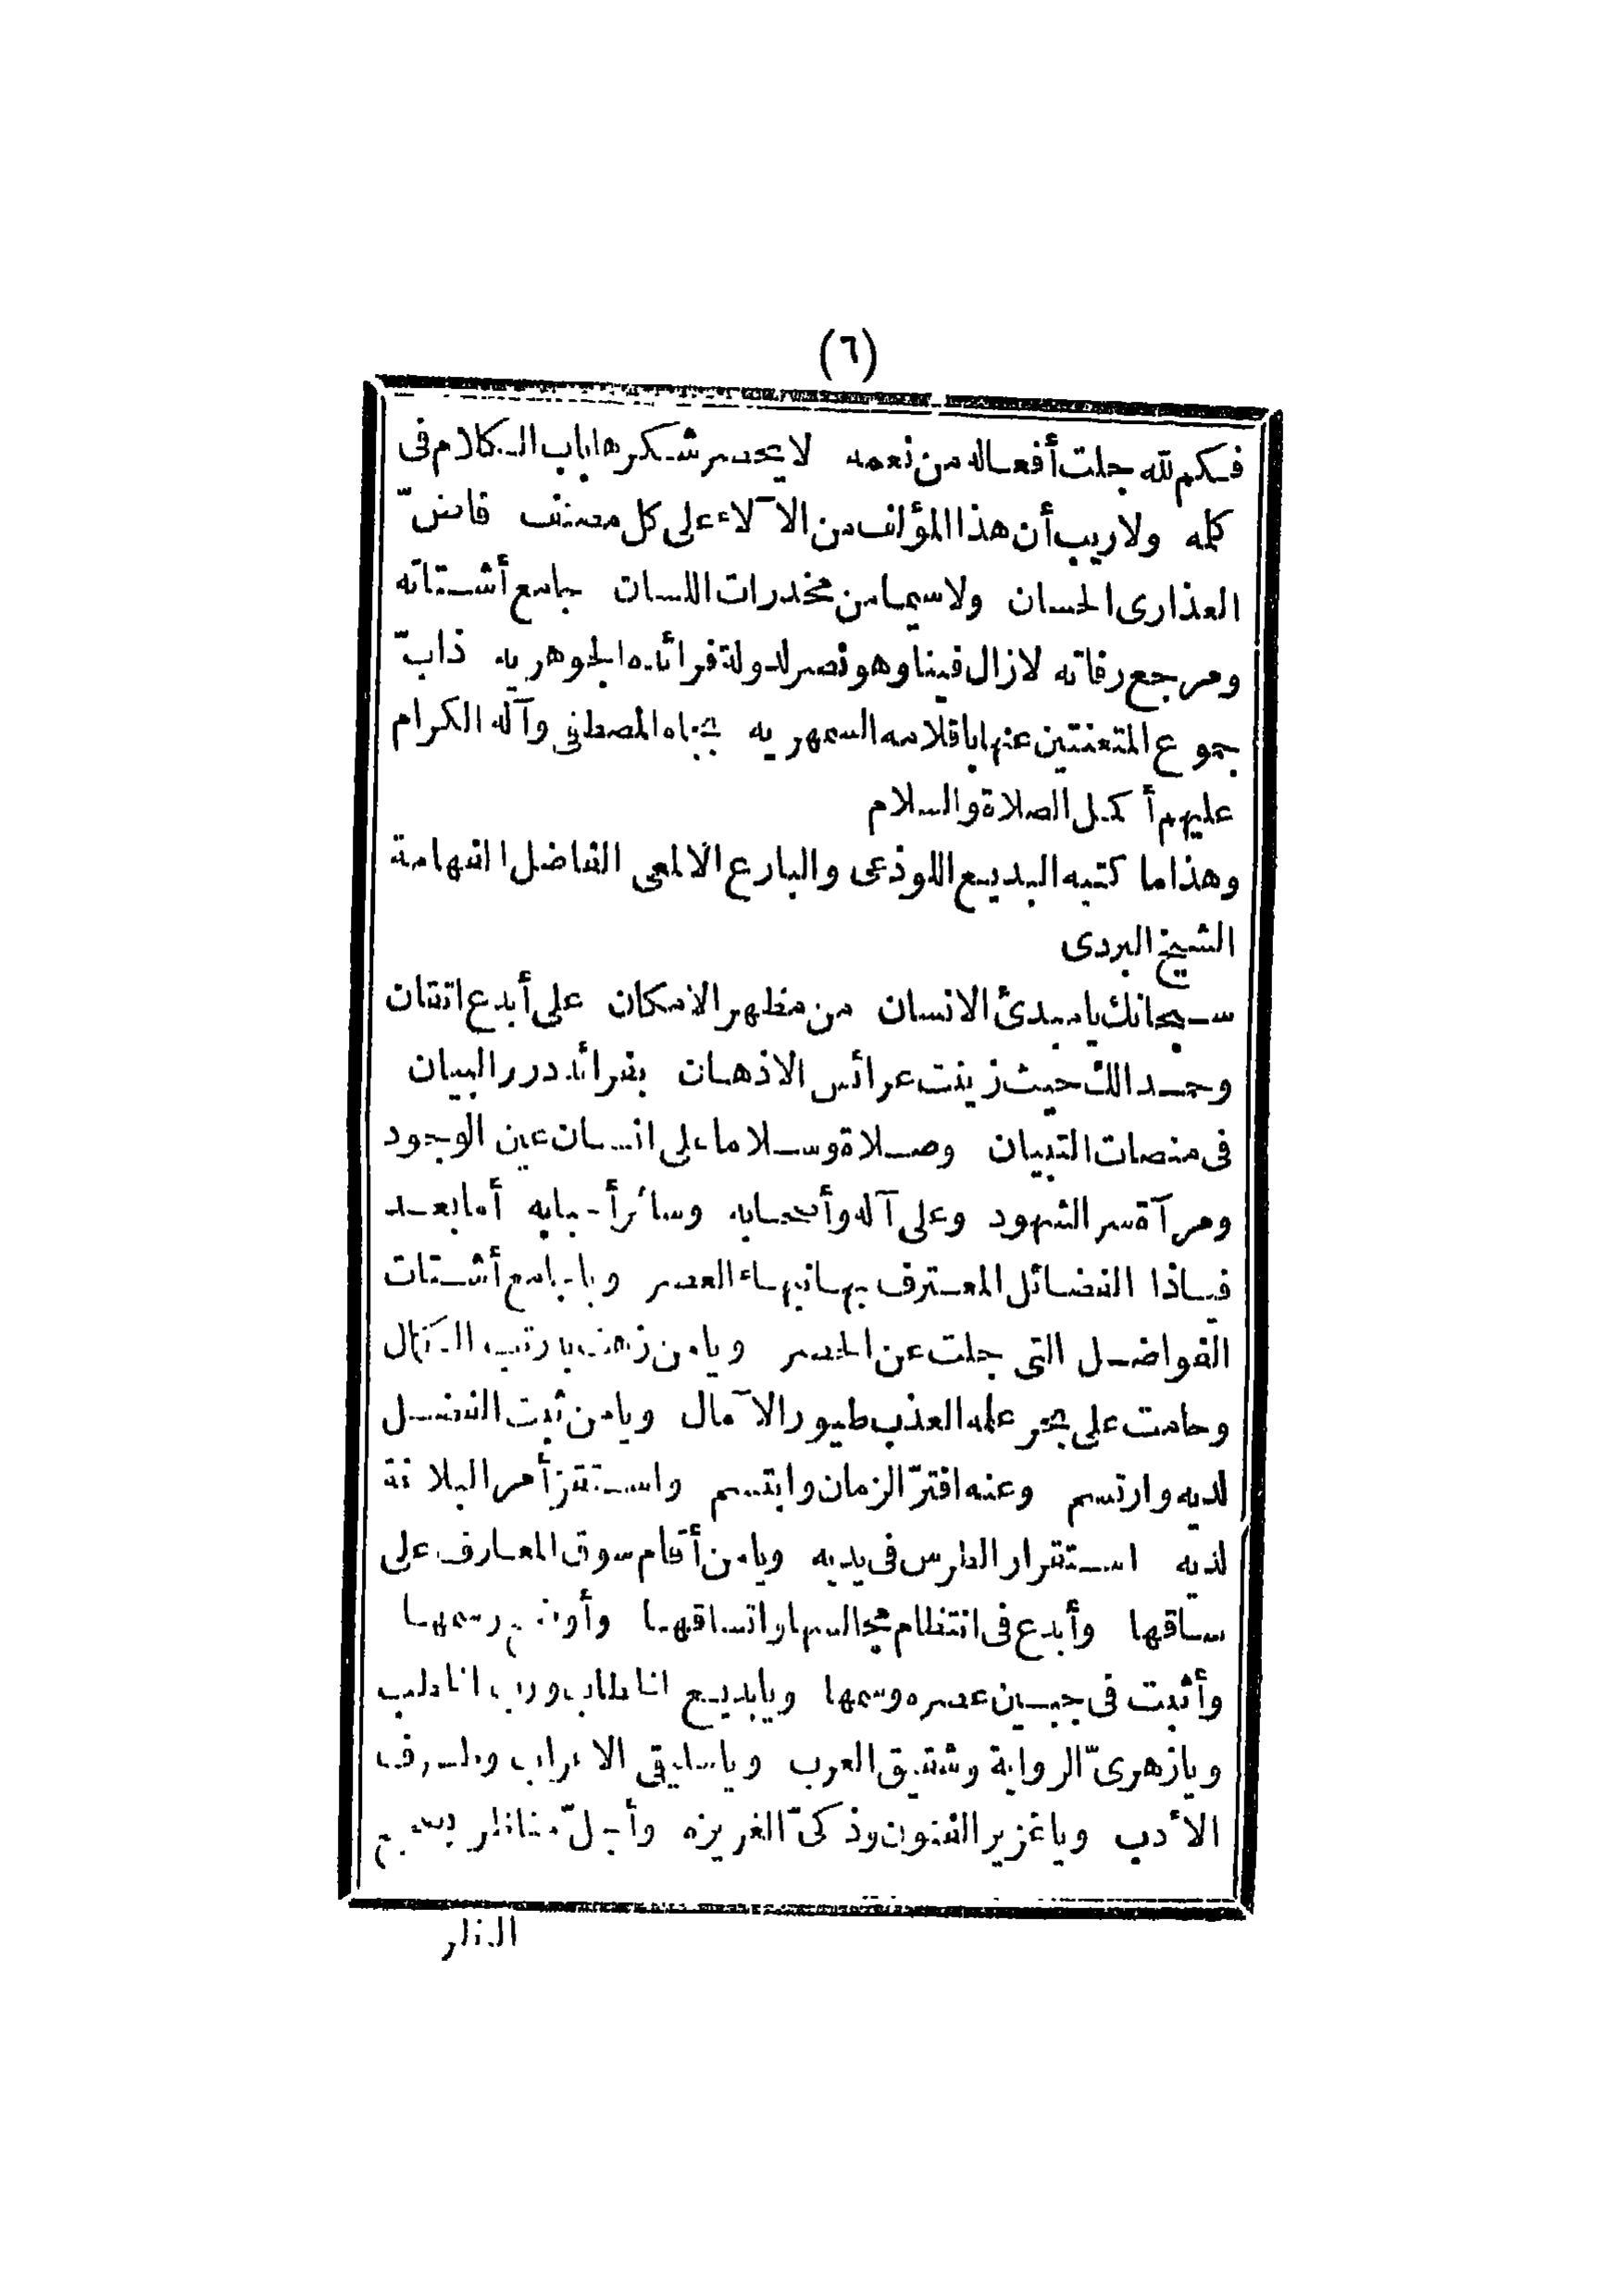 (٦)
فكم لله جلت أفعاله من نعمه لا يحصر شكرها باب الكلام فى
كله ولا ريب أن هذا المؤلف من الآلاء على كل مصنف قاض
العذارى الحسان ولا سيما من مخدرات اللسان جامع أشتاته
ومرجع رفاته لا زال فينا وهو نصر لدولة فرائده الجوهريه ذابّ
جموع المتعنتين عنها بأقلامه السمهريه بجاه المصطفى وآله الكرام
عليهم أكمل الصلاة والسلام
وهذا ما كتبه البديع اللوذعى والبارع الألمعى الفاضل الفهامة
الشيخ البردى
سبحانك يا مبدئ الانسان من مظهر الامكان على أبدع اتقان
وحمدا لك حيث زينت عرائس الاذهان بفرائد درر البيان
فى منصات التبيان وصلاة وسلاما على انسان عين الوجود
ومرآة سر الشهود وعلى آله وأصحابه وسائر أحبابه أما بعد
فيا ذا الفضائل المعترف بها نبهاء العصر ويا جامع أشتات
الفواضل التى جلت عن الحصر ويا من رتب الكمال
وحامت على بحر علمه العذب طيور الآمال ويا من ثبت الفضل
لديه وارتسم وعنه افترّ الزمان وابتسم واستقر أمر البلاغة
لديه استقرار الطرس فى يديه ويا من أقام سوق المعارف على
ساقها وأبدع فى انتظام مجالسها واتساقها وأوضح رسمها
وأثبت فى جبين عصره وسمها ويا بديع
ويا زهرىّ الرواية وشقيق العرب ويا سليقى الاعراب
الأدب ويا غزير الفنون وذكىّ الغريزه وأجلّ مناظر